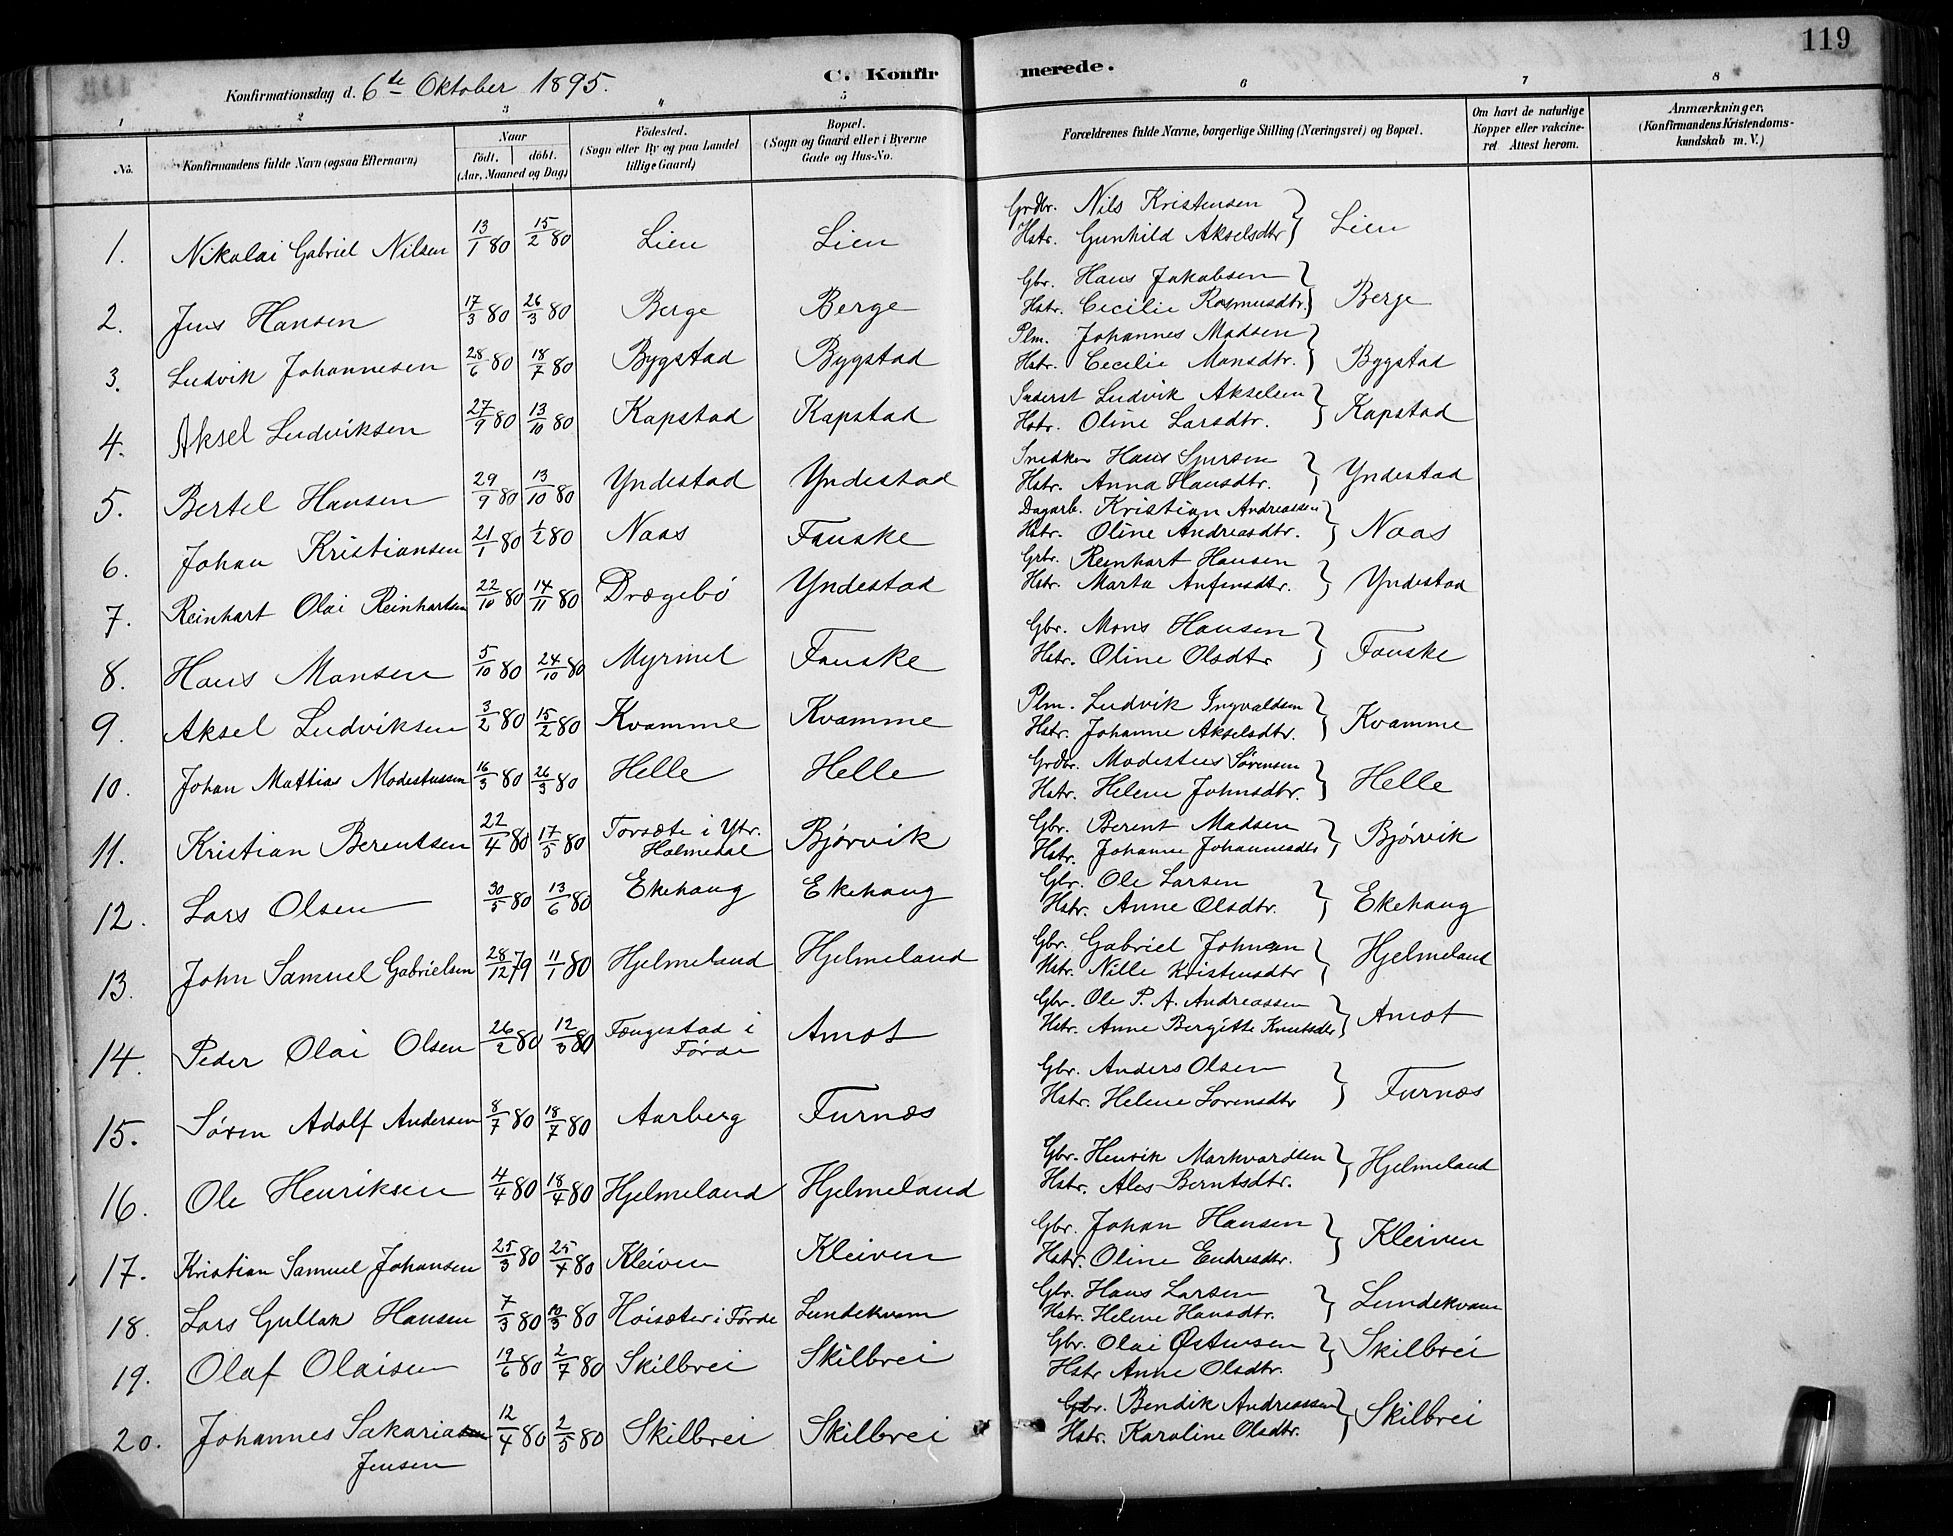 119
Konfirmationsdag d. 6te Oktober 1895.
C. Konfirmerede.
1 2 3 4 5 6 7 8
No. Konfirmandens fulde Navn (ogsaa Efternavn) Naar født. døbt. (Aar, Maaned og Dag) Fødested. (Sogn eller By og paa Landet tillige Gaard) Bopæl. (Sogn og Gaard eller i Byerne Gade og Hus-No. Forældrenes fulde Navne, borgerlige Stilling (Næringsvei) og Bopæl. Om havt de naturlige Kopper eller vakcineret Attest herom. Anmærkninger. (Konfirmandens Kristendomskundskab m. V.)
1. Nikolai Gabriel Nilsen 13/1 80 15/2 80 Lien Lien Grdbr. Nils Kristensen
Hstr. Gunhild Akselsdtr } Lien
2. Jens Hansen 17/3 80 26/3 80 Berge Berge Gbr. Hans Jakobsen
Hstr. Cecilie Rasmusdtr. } Berge
3. Ludvik Johannesen 28/6 80 18/7 80 Bygstad Bygstad Plm. Johannes Madsen
Hstr. Cecilie Monsdtr. } Bygstad
4. Aksel Ludviksen 27/9 80 13/10 80 Kapstad Kapstad Inderst Ludvik Akselsen
Hstr. Oline Larsdtr. } Kapstad
5. Bertel Hansen 29/9 80 13/10 80 Yndestad Yndestad Hans
Hstr. Anna Hansdtr. } Yndestad
6. Johan Kristiansen 21/1 80 1/2 80 Naas Fauske Dagarb. Kristian Andreassen
Hstr. Oline Andreasdtr. } Naas
7. Reinhart Olai Reinhartsen 22/10 80 14/11 80 Drægebø Yndestad Grbr. Reinhart Hansen
Hstr. Marta Anfinsdtr. } Yndestad
8. Hans Monsen 5/10 80 24/10 80 Myrmel Fauske Gbr. Mons Hansen
Hstr. Oline Olsdtr } Fauske
9. Aksel Ludviksen 3/2 80 15/2 80 Kvamme Kvamme Plm. Ludvik Ingvaldsen
Hstr. Johanne Akselsdtr. } Kvamme
10. Johan Mattias Modestussen 16/3 80 26/3 80 Helle Helle Grdbr. Modestus Sørensen
Hstr. Helene Johnsdtr. } Helle
11. Kristian Berentsen 22/4 80 17/5 80 Torsæte i Ytr. Holmedal Bjørvik Gbr. Berent Madsen
Hstr. Johanne Johannesdtr } Bjørvik
12. Lars Olsen 30/5 80 13/6 80 Ekehaug Ekehaug Gbr. Ole Larsen
Hstr. Anne Olsdtr. } Ekehaug
13. John Samuel Gabrielsen 28/12 79 11/1 80 Hjelmeland Hjelmeland Gbr. Gabriel Johnsen
Hstr. Nille Kristensdtr } Hjelmeland
14. Peder Olai Olsen 26/2 80 12/3 80 Fængestad i Førde Amot Gbr. Ole P. A. Andreassen
Hstr. Anne Bergitte Knutsdtr } Amot
15. Søren Adolf Andersen 8/7 80 18/7 80 Aarberg Furnæs Gbr. Anders Olsen
Hstr. Helene Sørensdtr } Furnæs
16. Ole Henriksen 4/4 80 18/4 80 Hjelmeland Hjelmeland Gbr. Henrik Markvardsen
Hstr. Ales Berntsdtr. } Hjelmeland
17. Kristian Samuel Johansen 25/3 80 25/4 80 Kleiven Kleiven Gbr. Johan Hansen
Hstr. Oline Endresdtr. } Kleiven
18. Lars Gullak Hansen 7/3 80 10/3 80 Høisæter i Førde Lundekvam Gbr. Hans Larsen
Hstr. Helene Hansdtr. } Lundekvam
19. Olaf Olaisen 19/6 80 2/7 80 Skilbrei Skilbrei Gbr. Olai Østensen
Hstr Anne Olsdtr. } Skilbrei
20. Johannes Sakarias Jensen 12/4 80 2/5 80 Skilbrei Skilbrei Gbr. Bendik Andreassen
Hstr. Karoline Olsdtr. } Skilbrei